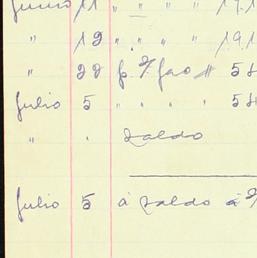 Junio 11 " " " " 171
" 12 " " " " 191
" 22 54
Julio 5 " " " " 54
" " Saldo
Julio 5 à Saldo à